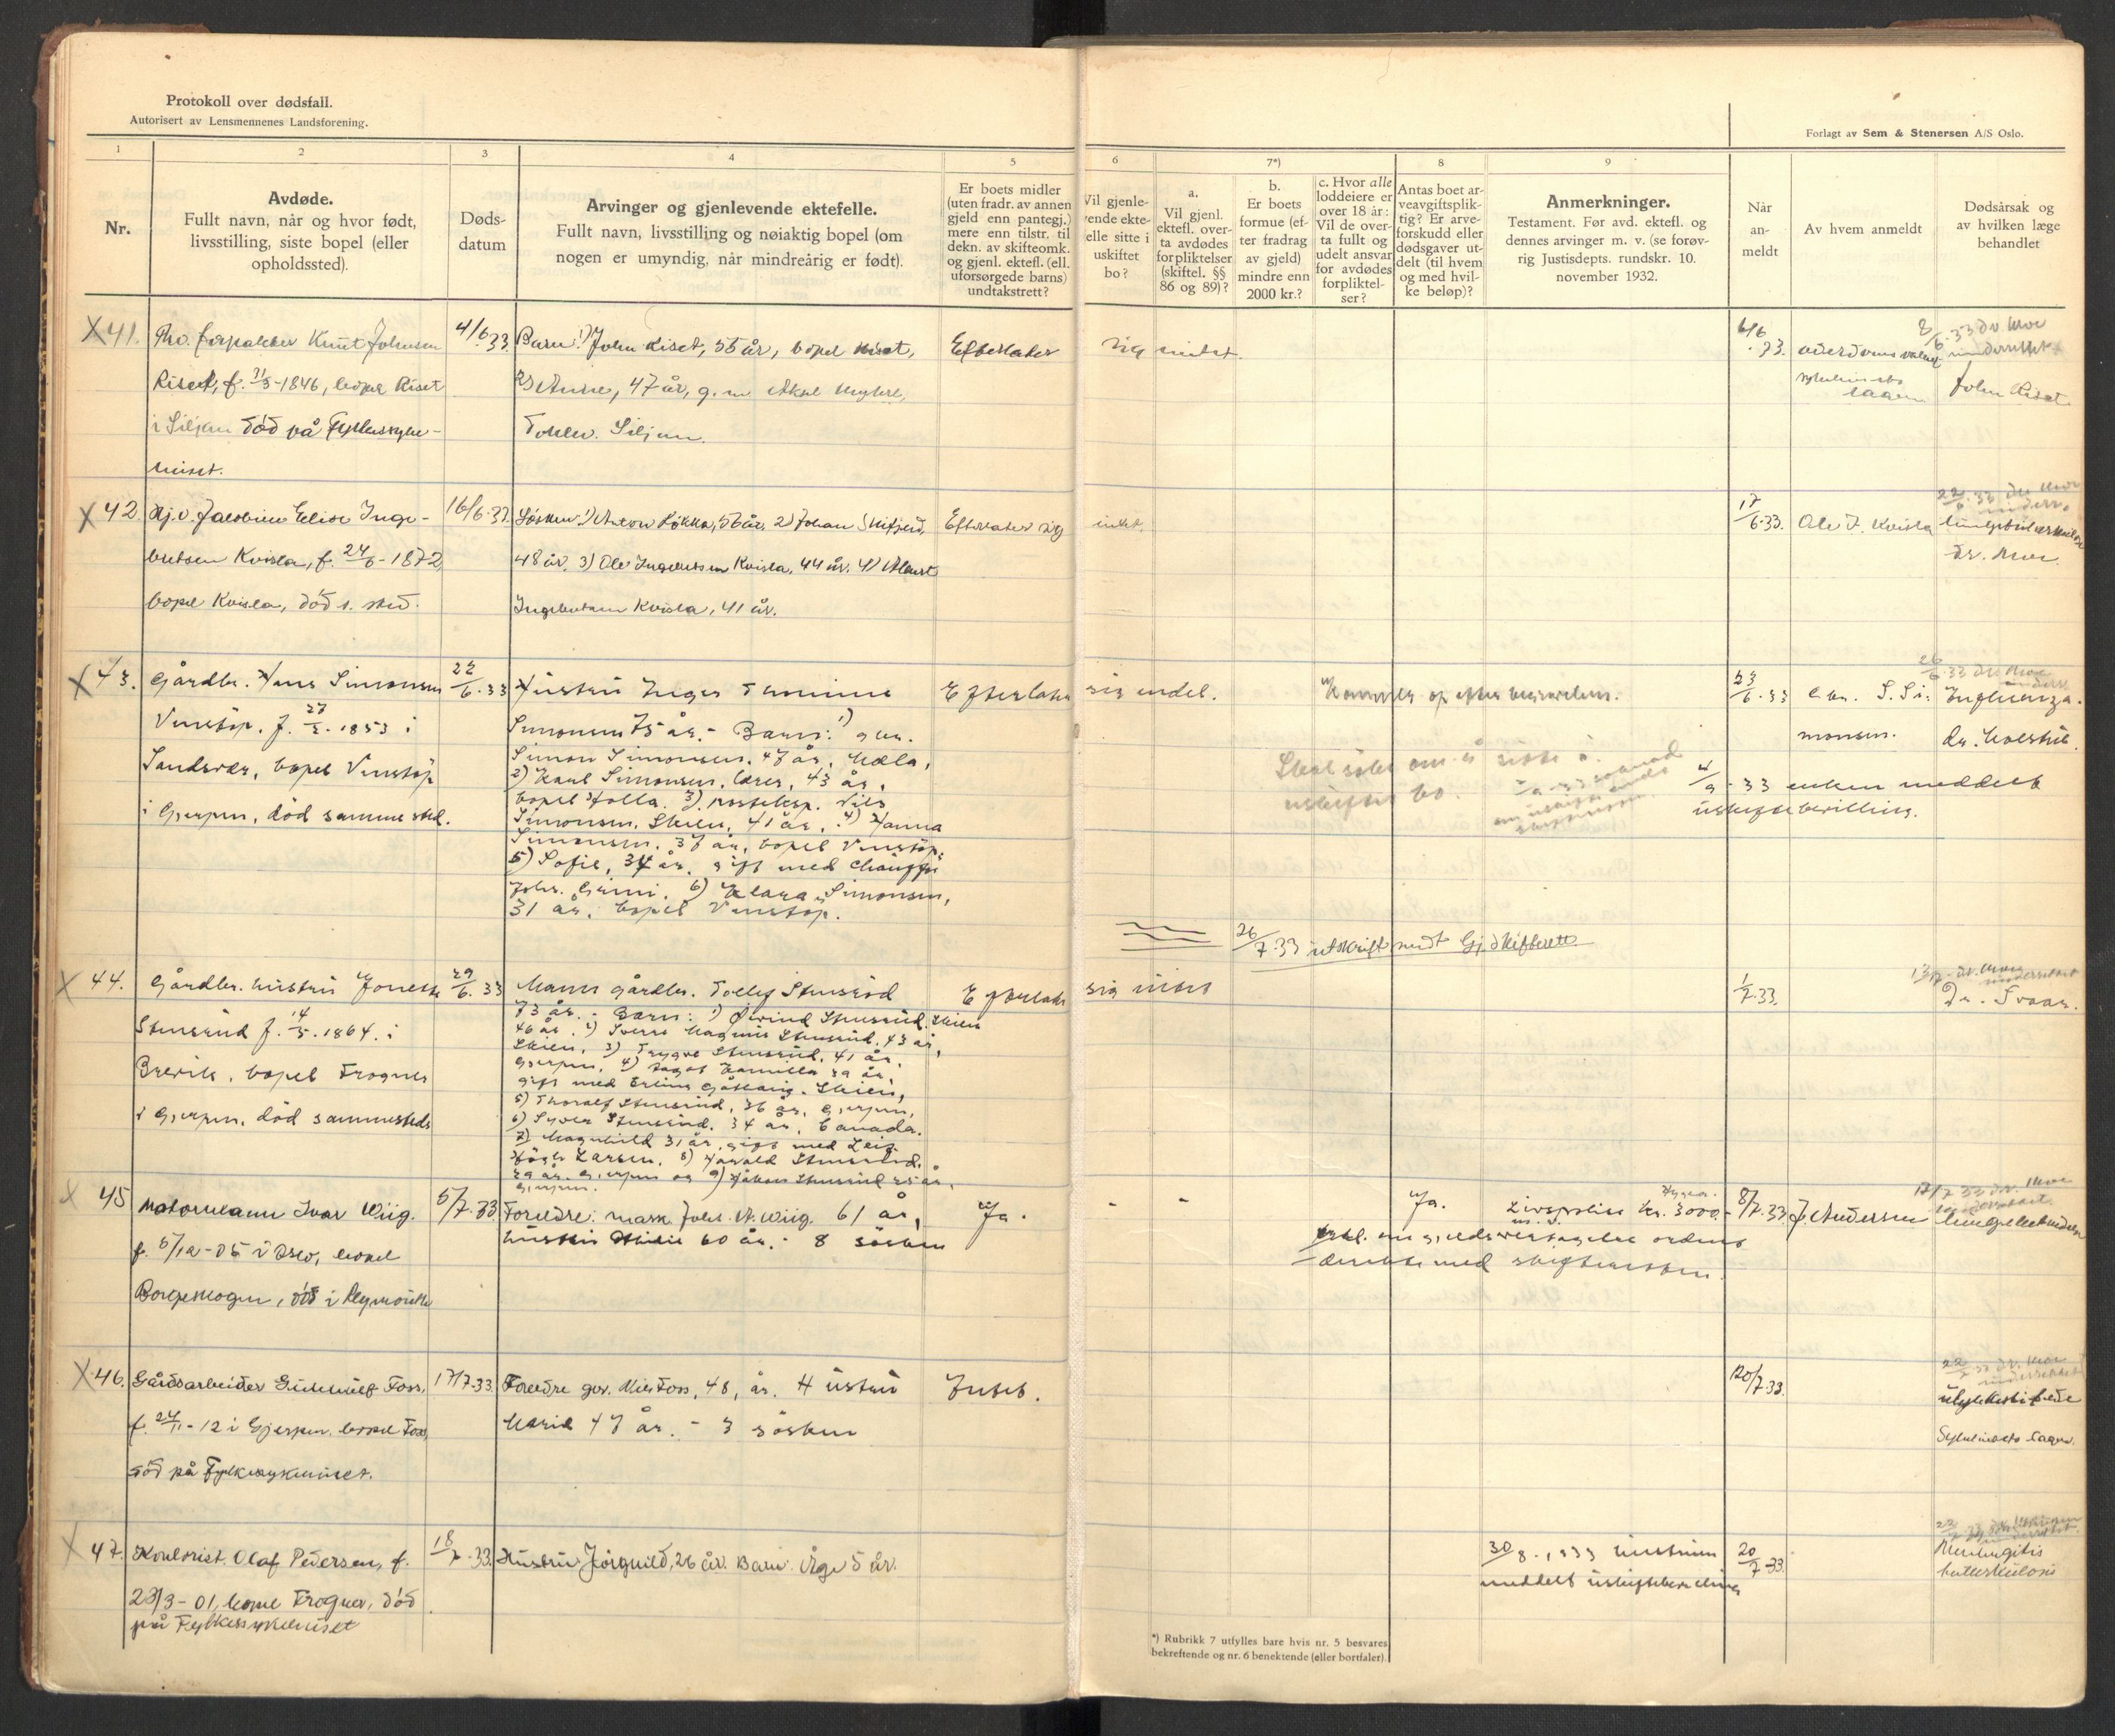 Protokoll over dødsfall.
Autorisert av Lensmennenes Landsforening.
Forlagt av Sem & Stenersen A/S Oslo.
1
2
3
4
5
6
7*)
8
9
Nr.
Avdøde.
Fullt navn, når og hvor født,
livsstilling, siste bopel (eller
opholdssted).
Døds-
datum
Arvinger og gjenlevende ektefelle.
Fullt navn, livsstilling og nøiaktig bopel (om
nogen er umyndig, når mindreårig er født).
Er boets midler
(uten fradr. av annen
gjeld enn pantegj.)
mere enn tilstr. til
dekn. av skifteomk.
og gjenl. ektefl. (ell.
uforsørgede barns)
undtakstrett?
Vil gjenle-
vende ekte-
elle sitte i
uskiftet
bo?
a.
Vil gjenl.
ektefl. over-
ta avdødes
forpliktelser
(skiftel. §§
86 og 89)?
b.
Er boets
formue (ef-
ter fradrag
av gjeld)
mindre enn
2000 kr.?
c. Hvor alle
loddeiere er
over 18 år:
Vil de over-
ta fullt og
udelt ansvar
for avdødes
forpliktel-
ser?
Antas boet ar-
veavgiftsplik-
tig? Er arve-
forskudd eller
dødsgaver ut-
delt (til hvem
og med hvil-
ke beløp)?
Anmerkninger.
Testament. Før avd. ektefl. og
dennes arvinger m. v. (se forøv-
rig Justisdepts. rundskr. 10.
november 1932.
Når
an-
meldt
Av hvem anmeldt
Dødsårsak og
av hvilken læge
behandlet
X 41.
Knut Johnsen
Riset, f. 11/3-1846, bopel Riset
i Siljan død på Fylkessyke-
huset.
4/6 33
Barn: 1) John Riset, 55 år, bopel Riset,
2) Anne, 47 år, g. m. Aksel
Siljan.
Efterlater sig intet.
6/6 33.
John Riset
X 42
Jacobine Elise Inge-
bretsen Kvisla, f. 24/6-1872
bopel Kvisla, død s. sted.
16/6-33
Søsken: 1) Anton Løkka, 56 år, 2) Johan
48 år. 3) Ole Ingebretsen Kvisla, 44 år. 4)
Ingebretsen Kvisla, 41 år.
Efterlater sig intet.
17/6-33.
Ole I. Kvisla
dr. Moe.
X 43.
Gårdbr. Hans Simonsen
Venstøp. f. 27/3-1853 i
Sandsvær, bopel Venstøp
i Gjerpen, død sammested.
22/6-33
Hustru Inger Thomine
Simonsen 75 år. - Barn: 1) gbr.
Simon Simonsen, 47 år, Mella,
2) Karl Simonsen, lærer, 43 år,
bopel Holla. 3) posteksp. Nils
Simonsen, Skien, 41 år, 4) Hanna
Simonsen, 37 år, bopel Venstøp.
5) Sofie, 34 år, gift med chauffør
Johs. 6) Klara Simonsen,
31 år, bopel Venstøp.
Efterlater sig endel.
Kommer op efter begravelsen.
Skal søke om å sitte i
uskiftet bo.
23/6-33
gbr. S. Si-
monsen.
Influenza.
dr. Holstid.
4/9-33 enken meddelt
uskiftebevilling.
26/7-33 utskrift sendt Gj. skifterett
X 44.
Gårdbr. hustru Jonette
Stensrud f. 14/5-1864. i
Brevik, bopel Frogner
i Gjerpen, død sammesteds
29/6-33
Mann gårdbr. Tollef Stensrød
73 år. - Barn: 1) Øivind Stensrud. Skien
46 år, 2) Sverre Magnus Stensrud, 43 år,
Skien, 3) Trygve Stensrud, 41 år,
Gjerpen, 4) Dagot Kamilla 39 år,
gift med Erling Skien,
5) Thoralf Stensrud, 36 år, Gjerpen,
6) Syver Stensrud. 34 år, Canada.
7) Magnhild 31 år, gift med Leif
Larsen, 8) Harald Stensrud,
29 år. Gjerpen og 9) Håkon Stensrud 25 år,
Gjerpen.
Efterlater sig intet
1/7-33.
Dr. Svaar.
X 45
Matersmann Ivar Wiig.
f. 5/12-05 i Oslo, bopel
Borgeskogen, død i
5/7-33
Foreldre: mask. Johs. A. Wiig. 61 år,
hustru 60 år. - 8 søsken
Ja.
-
-
Ja.
Livspolise kr. 3000.-
Erkl. om gjeldsovertagelse ordnes
direkte med skifteretten.
8/7-33
J. Andersen
X 46.
Gårdsarbeider Foss,
f. 24/11-12 i Gjerpen, bopel Foss,
død på Fylkessykehuset.
17/7-33.
Foreldre gbr. Nils Foss, 48, år. Hustru
Marie 47 år. - 3 søsken
Intet.
20/7-33.
ulykkestilfelle
Sykehusets lagen.
X 47.
Kontorist. Olaf Pedersen, f.
23/3-01, bopel Frogner, død
på Fylkessykehuset
18/7-33.
Hustru Jørgnild, 26 år. Barn: Åge 5 år.
30/8.-1933 hustruen
meddelt uskiftebevilling
20/7-33
Meningitis
tuberkulosis
*) Rubrikk 7 utfylles bare hvis nr. 5 besvares
bekreftende og nr. 6 benektende (eller bortfaler).